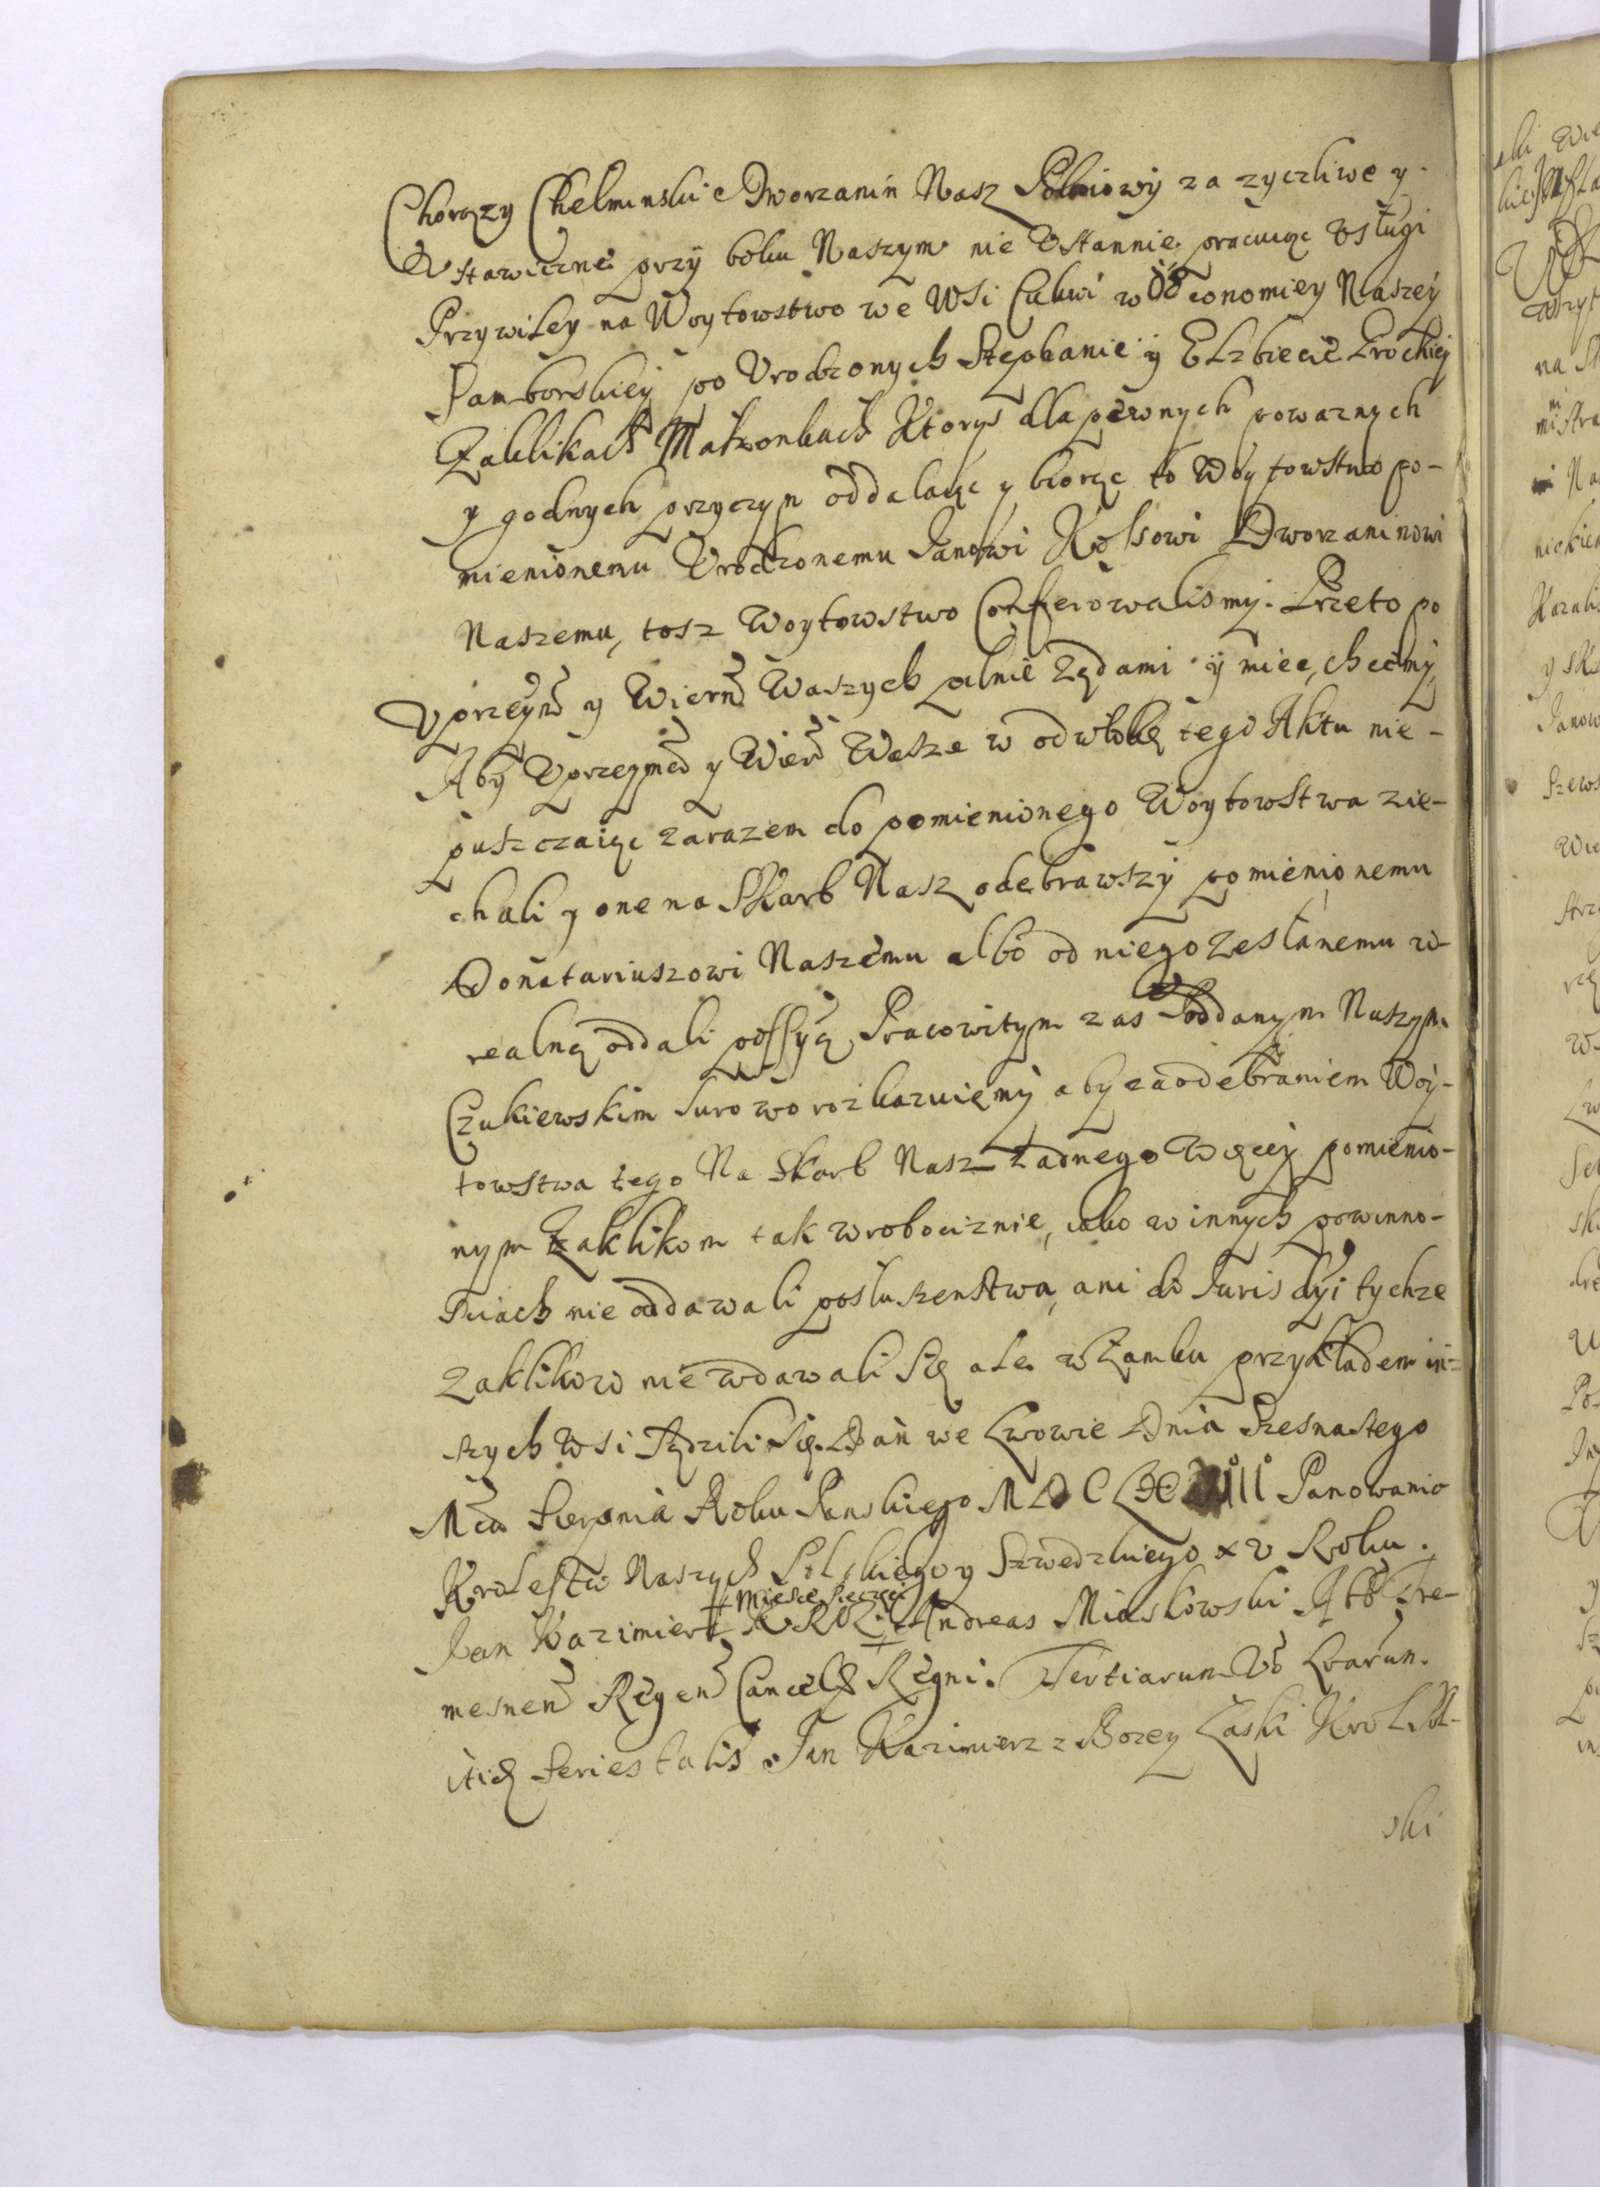 Chorązy Chelminskie Dworzanin Nasz Pokoiowy za zyczliwe y
Vstawiczne przy boku Naszym nie Vstannie pracuiąc Vsługi
Przywiley na Woytowstwo we Wsi Cukwi w Oeconomiey Naszey
Samborskiey po Vrodzonych Stephanie y Elzbiecie
Zaklikach Małzonkach Ktorys dla pewnych powaznych
y godnych przyczyn oddalaiąc y biorąc to Woytowstwo po-
mienionemu Vrodzonemu Janowi Dworzaninowi
Naszemu, tosz Woytowstwo Conferowalismy. Przeto po
Vprzeym y Wiern Waszych pilnie Ządami y miec, chcemy,
Aby Vprzeymcz y Wier Wasze w odwłokę tego Aktu nie-
puszczaiąc zarazem do pomienionego Woytowstwa zie-
chali y one na Skarb Nasz odebrawszy pomienionemu
Donatariuszowi Naszemu albo od niego Zesłanemu w-
realną oddali possyą, Pracowitym zas Poddanym Naszym
Czukiewskim surowo rozkazuięmy aby za odebraniem Woy-
towstwa tego Na Skarb Nasz zadnego więcey pomienio-
nym Zaklikom tak w robociznie, iako w innych powinno-
sciach nie oddawali posłuszenstwa, ani do Jurisdyi tychze
Zaklikow nie wdawali się ale w Zamku przykładem in-
szych wsi sądzili się. Dan we Lwowie Dnia Szesnastego
Mca Sierpnia Roku Panskiego MDCLXIII Panowania
Krolestw Naszych Polskiego y Szwedzkiego XV Roku.
Mieisce Pieczęci
Jan Kazimierz KROL Andreas Miaskowski Abb Tre-
mesnen Regen Cancel Regni. Tertiarum Vo Lrarum
itidē series talis. Jan Kazimierz z Bozey Łaski Krol Pol-
ski